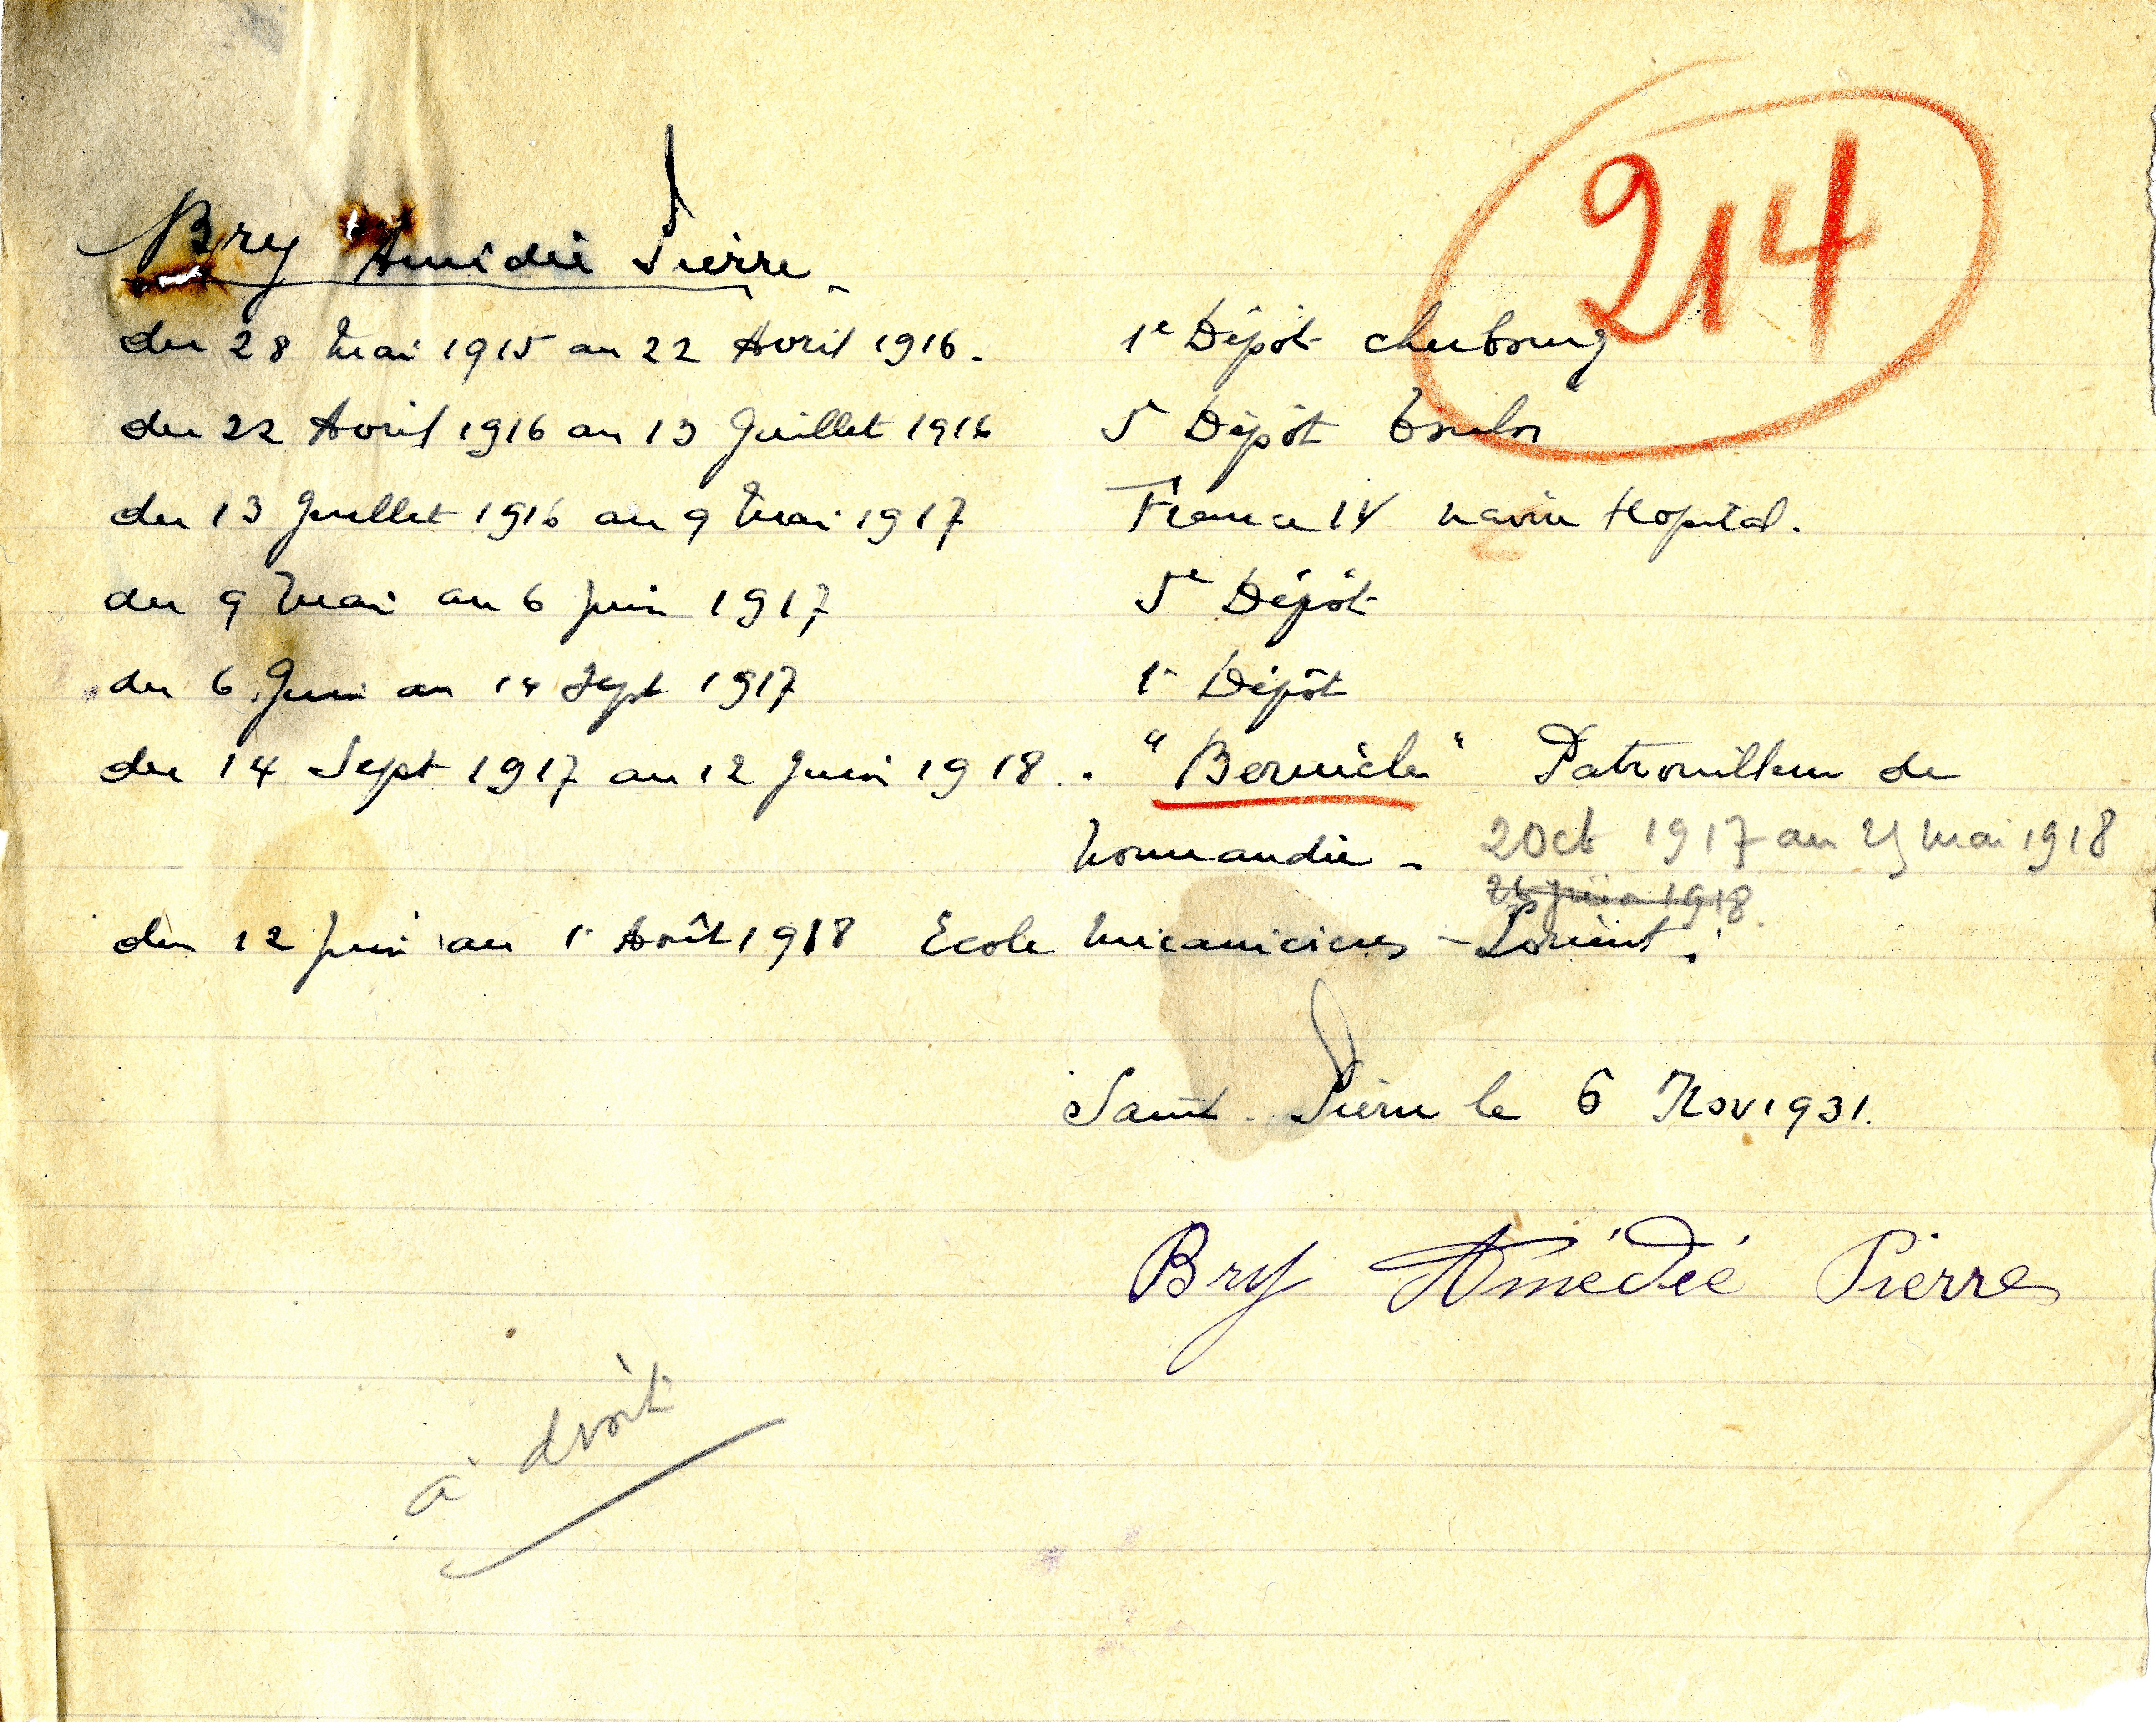 214
Bry Amédée Pierre
du 28 Mai 1915 au 22 Avril 1916. 1e Dépôt cherbourg
du 22 Avril 1916 au 13 Juillet 1916 5e Dépôt Toulon
du 13 Juillet 1916 au 9 Mai 1917 France IV navire Hopital.
du 9 Mai au 6 Juin 1917 5e Dépôt
du 6 Juin au 14 Sept 1917 1e Dépôt
du 14 Sept 1917 au 12 Juin 1918. "Bernicle" Patrouilleur de
Normandie - 2 Oct 1917 au 25 mai 1918
juin 1918.
du 12 Juin au 1e Août 1918 Ecole mécaniciens - Lorient.
Saint-Pierre le 6 Nov 1931.
Bry Amédée Pierre
à droit